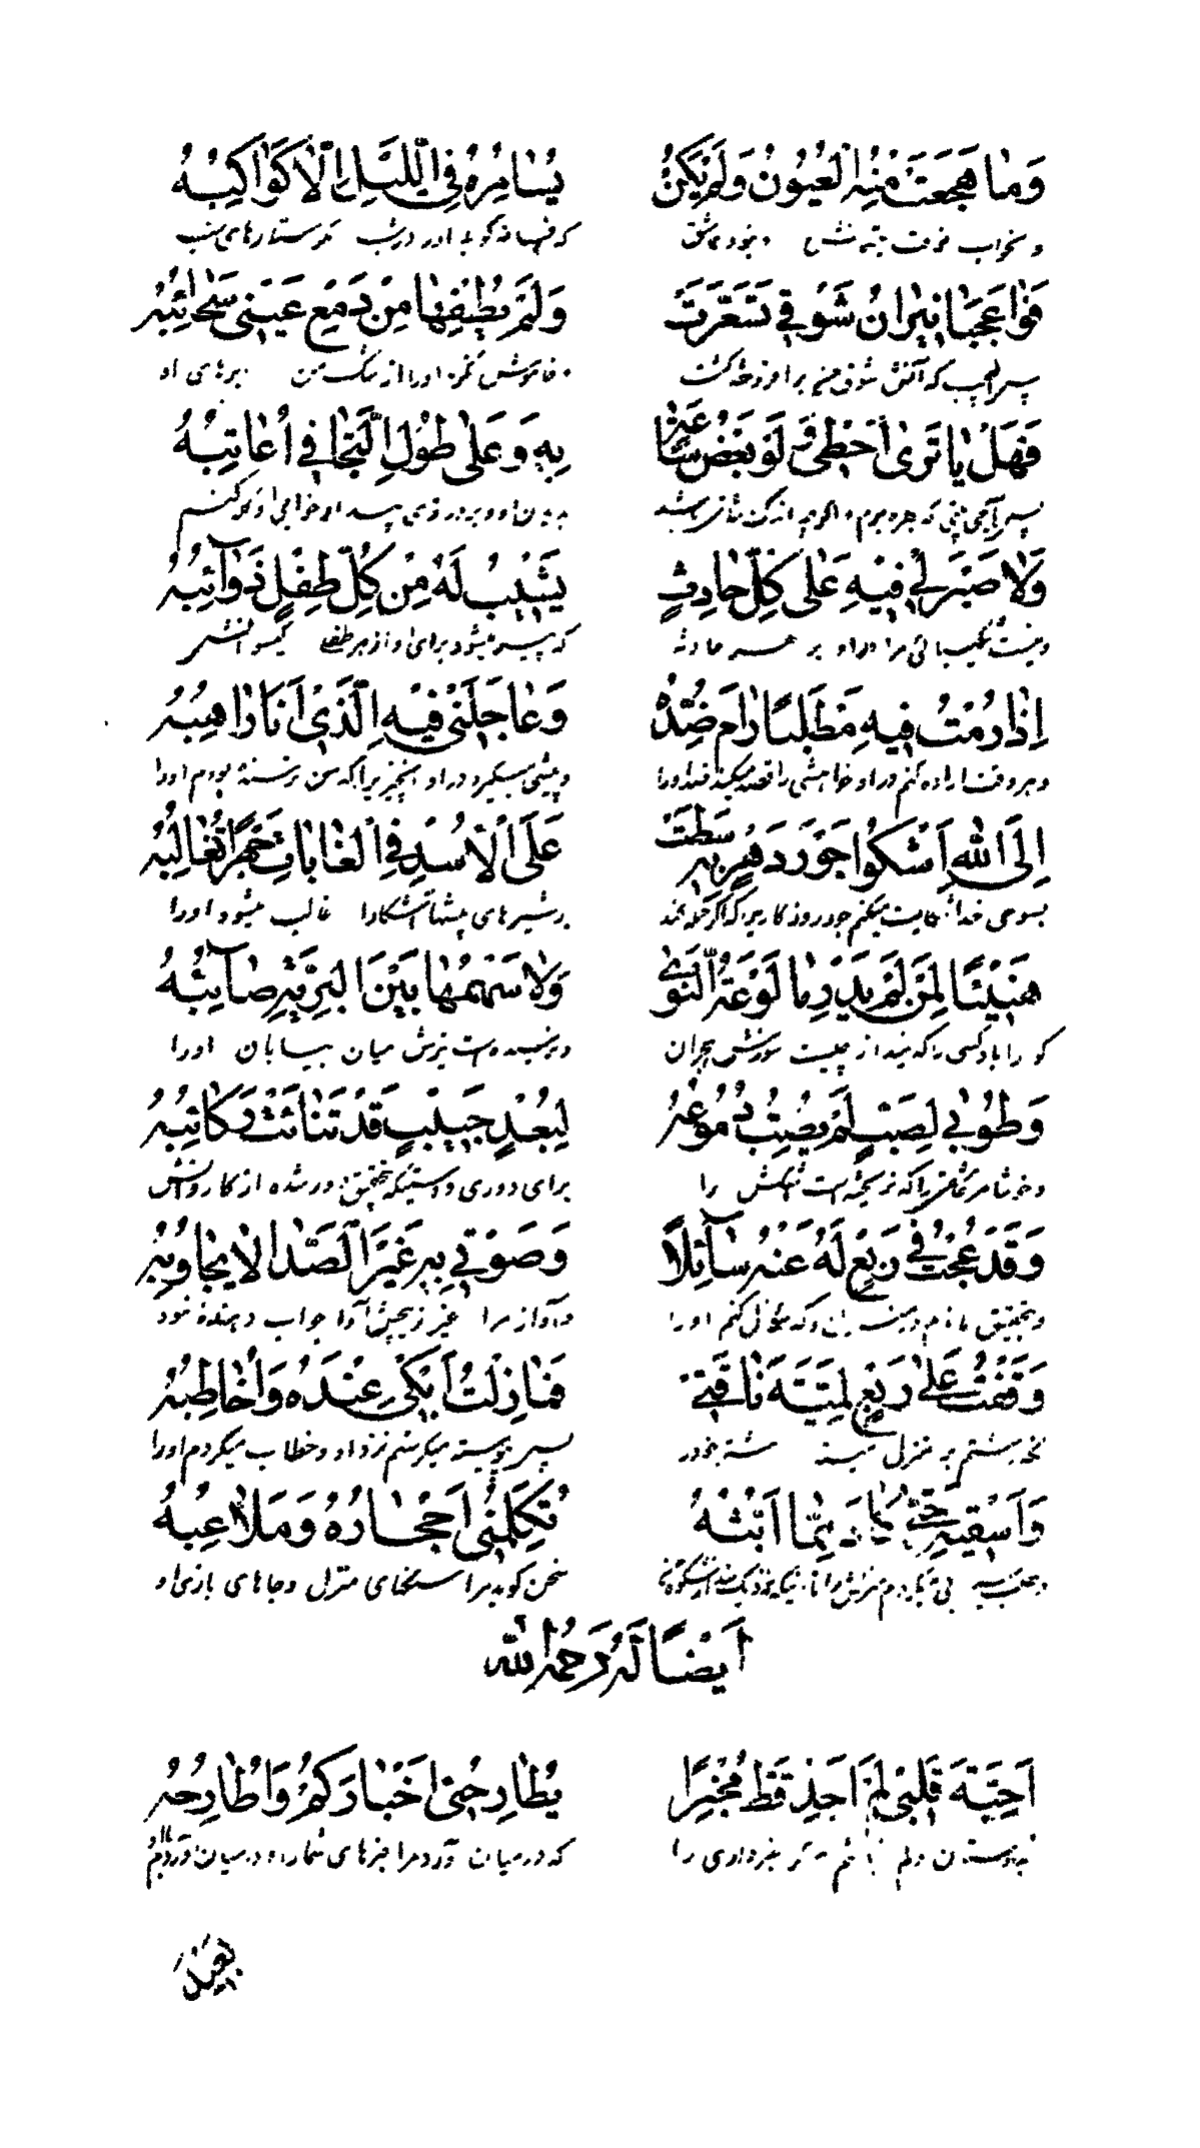 وَمٰا هَجَعَتْ مِنْهُ الْعُيُونُ وَلَمْ يَكُنْ يُسٰامِرُهُ فِي اللَّيْلِ إِلّٰا كَوٰاكِبُهُ
و بخواب نرفت چشمش و نبودی شب که افسانه گوید او در شب مگر ستارهای شب
فَوٰا عَجَبٰا نِيرٰانُ شَوْقِي تَسَعَّرَتْ وَلَمْ يُطْفِهٰا مِنْ دَمْعِ عَيْنِي سَحٰائِبُهُ
پس ای عجب که آتش شوق من بر افروخته گشت و خاموش نکرد او را از اشک من ابرهای او
فَهَلْ يٰا تَرىٰ أَحْظىٰ وَلَوْ بَعْضَ سٰاعَةٍ بِهِ وَعَلىٰ طُولِ التَّجٰافِي أُعٰاتِبُهُ
وَلٰا صَبْرَ لِي فِيهِ عَلىٰ كُلِّ حٰادِثٍ يَشِيبُ لَهُ مِنْ كُلِّ طِفْلٍ ذَوٰآئِبُهُ
و نیست شکیبائی مرا در او بر هر حادثه که پیر میشود برای او از هر طفلی گیسوانش
إِذٰا رُمْتُ فِيهِ مَطْلَبًا رٰامَ ضِدَّهُ وَعٰاجَلَنِي فِيهِ الَّذِي أَنَا رٰاهِبُهُ
و هر وقت اراده کنم در او خواهشی را قصد میکند ضد او را و پیشی میگیرد در او آنچیزیرا که من ترسنده بودم او را
إِلَى اللهِ أَشْكُوا جَوْرَ دَهْرٍ بِهِ سَطَتْ عَلَى الْأُسْدِ فِي الْغٰابٰاتِ جَهْرًا ثَعٰالِبُهُ
بسوی خدا شکایت میکنم جور روزگاریرا که اگر حمله کند بر شیرهای بیشها آشکارا غالب میشود او را
هَنِيئًا لِمَنْ لَمْ يَدْرِ مٰا لَوْعَةُ النَّوىٰ وَلٰا سَهْمُهٰا بَيْنَ الْبَرِيَّةِ صٰآئِبُهُ
گوارا باد کسی را که نمیداند چیست سوزش هجران و نرسیده است تیرش میان بیابان او را
وَطُوبىٰ لِصَبٍّ لَمْ يُصِبْ دُمُوعَهُ لِبُعْدِ حَبِيبٍ قَدْ تَنٰائَتْ رَكٰائِبُهُ
و خوشا مر عاشقیرا که نریخته است اشکش را برای دوری دوستیکه بتحقیق دور شده از کاروانش
وَقَدْ عُجْتُ فِي رَبْعٍ لَهُ عَنْهُ سٰآئِلًا وَصَوْتِي بِهِ غَيْرَ الصَّدٰا لٰا يُجٰاوِبُهُ
وَقَفْتُ عَلىٰ رَبْعٍ لِمَيَّةَ نٰاقَتِي فَمٰا زِلْتُ أَبْكِي عِنْدَهُ وَأُخٰاطِبُهُ
نگه داشتم بر منزل میه شتر خود را پس پیوسته میگریستم نزد او و خطاب میکردم او را
وَأَسْقِيهِ حَتّىٰ كٰادَ مِمّٰا أَبُثُّهُ تُكَلِّمُنِي أَحْجٰارُهُ وَمَلٰاعِبُهُ
سخن گوید مرا سنگهای منزل و جاهای بازی او
أَيْضًا لَهُ رَحِمَهُ اللهُ
أَحِبَّةَ قَلْبِي لَمْ أَجِدْ قَطُّ مُخْبِرًا يُطٰارِحُنِي أَخْبٰارَكُمْ وَأُطٰارِحُهُ
که در میان آورد مرا خبرهای شما را و در میان آوردم او را